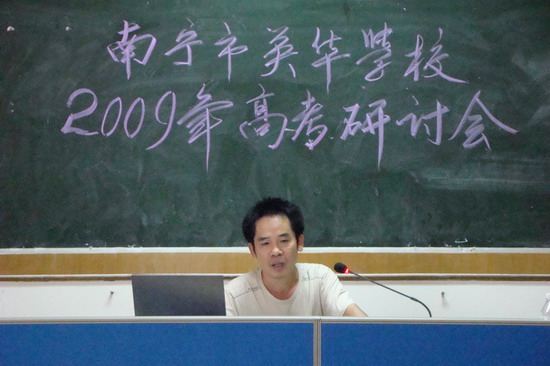 南宁市英华学校
2009年高考研讨会